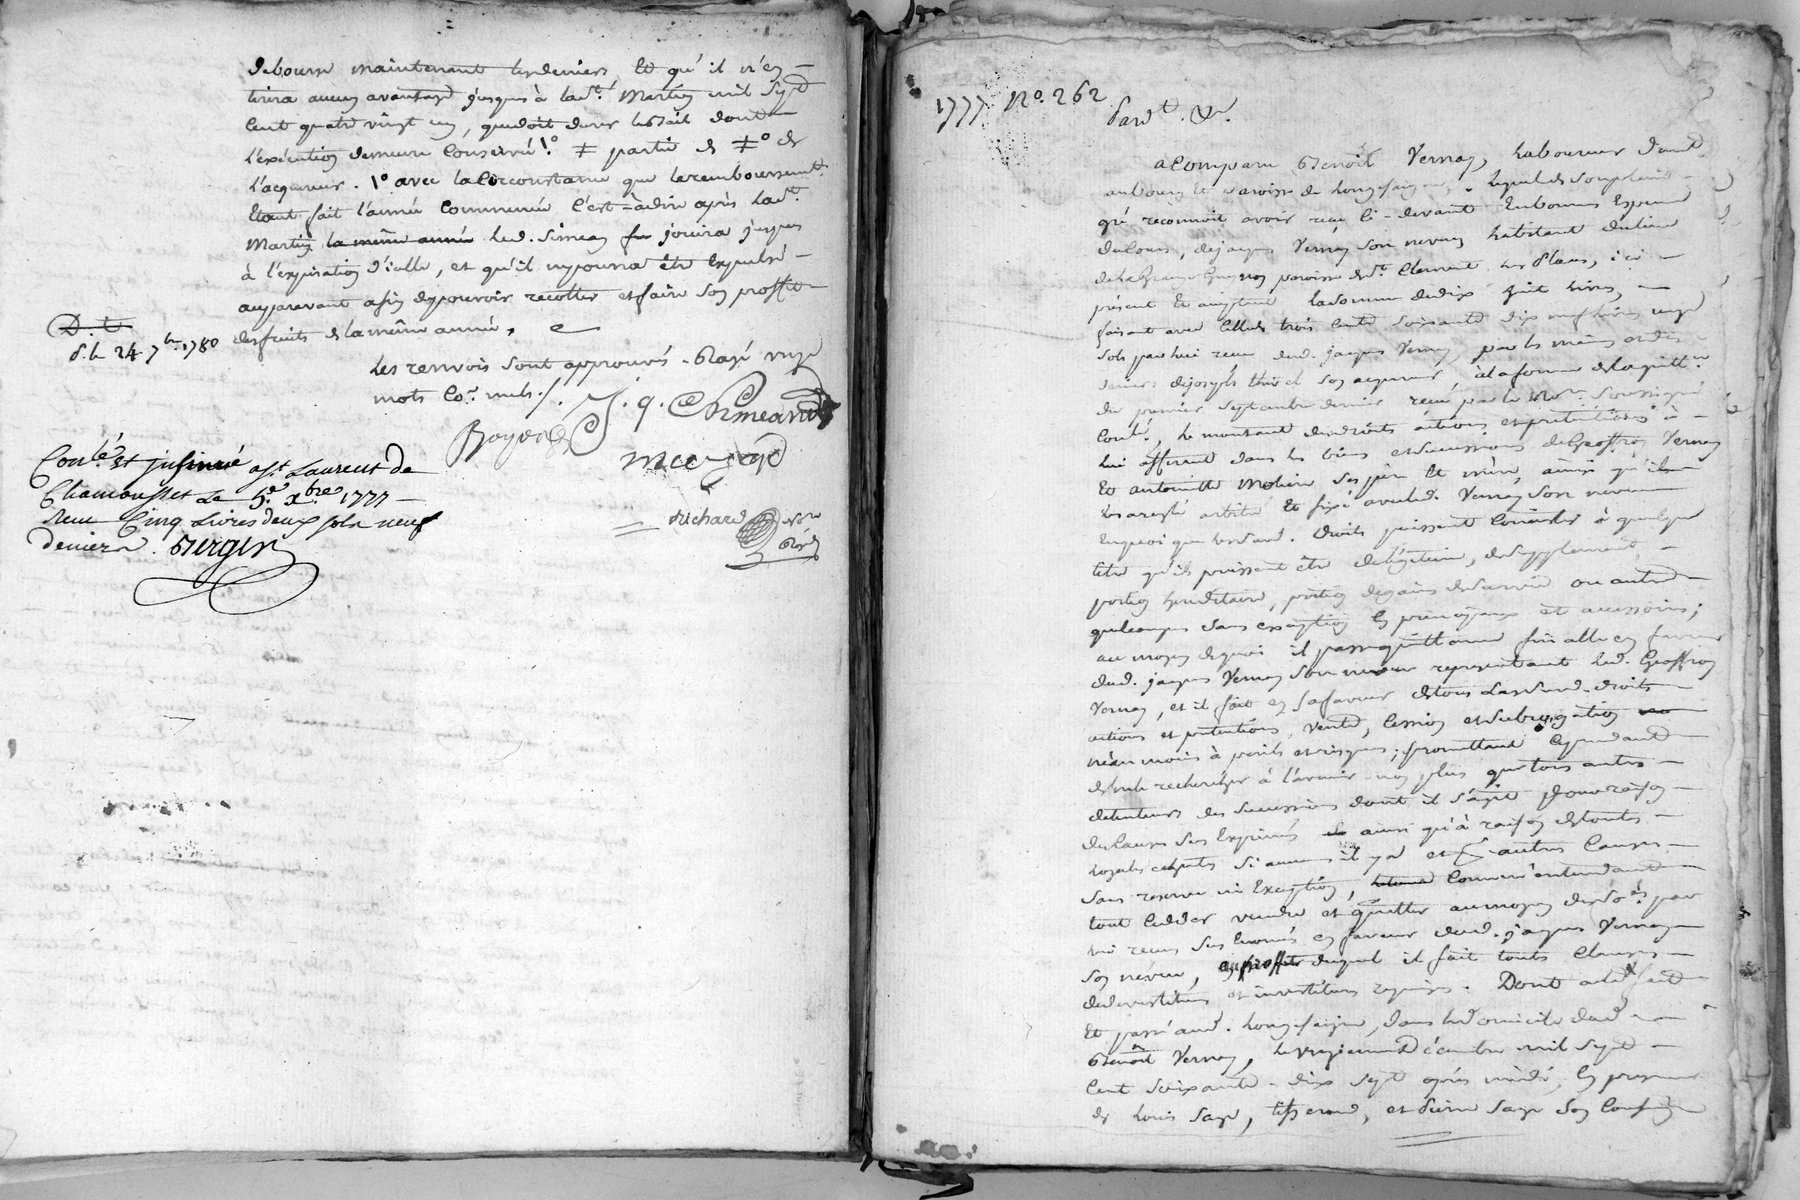 debourse maintenant les deniers, Et qu'il n'en
tirera aucun avantage jusques à lad.te Martin mil Sept
Cent quatre vingt un, que doit durer le Bail dont
l'exécution demeure Conservée 1.° ≠ partie de ≠° de
l'acquereur. 1° avec la Circonstance que le remboursement
Etant fait l'année Commencée C'est-à-dire après lad.te
Martin la même année led. Simean jouira jusques
à l'expiration d'icelle, et qu'il n'y pourra être Expulsé
auparavant afin de pouvoir recolter et faire Son proffit
des fruits de la même année.
D. t.
d. le 24 7bre 1780
Les renvois Sont approuvés. Rayé
mots Co.e nuls ./.
J. q. Chimeand
Richard
Con.lé et insinué a S.t Laurent de
Chamousset Le 5.e Xbre 1777
Reçu Cinq Livres deux sols neuf
deniers. Berger
1777 No. 262
Pard.t &.
a Comparu Benoit Vernay, Laboureur dem.t
au bourg et Paroisse de Longesaigne, Lequel de Son plein
gré reconnoit avoir reçu Ci-devant En bonnes Espèces
de Cours, de jacques Vernay Son neveu habitant du lieu
paroisse de S.t Clement Les Places, ici
présent Et acceptant La Somme de dix huit livres,
faisant avec Celle de trois Cents Soixante dix neuf livres
Sols par lui reçue dud. jacques Vernay, par les mains et des
deniers de joseph Son acquereur, à la forme de la quitt.ce
du premier Septembre dernier reçue par le No.re Soussigné
Conlé., le montant des droits actions et prétentions à
lui afférant dans les biens et Successions de Geoffroy Vernay
Et antoinette Moliere Ses père Et mère, ainsi qu'ils
l'ont aresté arbitré Et fixé avec led. Vernay Son neveu
En quoi que lesdt.s Droits puissent Consister à quelque
titre qu'ils puissent être de légitime, de Supplement,
portion hereditaire, portion de gains de Survie ou autres
quelconques Sans exception En principaux et accessoires;
au moyen de quoi il passe quittance finalle en faveur
dud. jacques Vernay Son neveu representant led. Geoffroy
Vernay, et il fait en Sa faveur de tous Les Susd. droits
actions et prétentions, vente, Cession et Subrogation
néanmoins à perils et risques; promettant Cependant
de ne le rechercher à l'avenir non plus que tous autres
detenteurs des Successions dont il S'agit pour raison
des Causes Sus Exprimées ainsi qu'à raison de toutes
Sans reserve ni Exception, Comm'entendant
tout Ceder vendre et quitter au moyen des So.es par
lui reçues Sus Enoncées en faveur dud. jacques Vernay
Son neveu, au proffit duquel il fait toutes Clauses
de devestiture et investiture requises. Dont acte fait
Et passé aud. Longesaigne, dans le domicile dud.
Benoit Vernay, le onzieme décembre mil Sept
Cent Soixante-dix Sept après midi, En presence
de Louis Sage, tisserand, et Pierre Sage